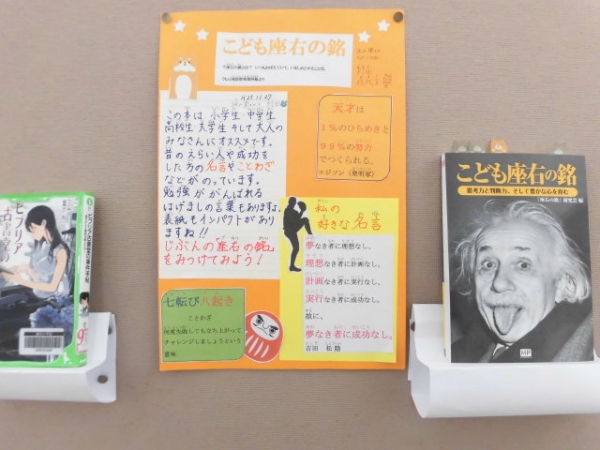 こども座右の銘
この本は小学生 中学生
高校生 大学生 そして大人の
みなさんにオススメです。
昔のえらい人や成功を
した方の名言やことわざ
などがのっています。
勉強ががんばれる
はげましの言葉もありますよ。
表紙もインパクトがあり
ますね!!
じぶんの座右の銘
をみつけてみよう!
天才は
1%のひらめきと
99%の努力
でつくられる。
エジソン(発明家)
私の
好きな名言
夢なき者に理想なし、
理想なき者に計画なし、
計画なき者に実行なし、
実行なき者に成功なし。
故に、
夢なき者に成功なし。
吉田 松陰
七転び八起き
ことわざ
何度失敗しても立ち上がって
チャレンジしましょうという
意味
こども座右の銘
思考力と判断力、そして豊かな心を育む
「座右の銘」研究会 編
MP
ビブリア
古書堂の